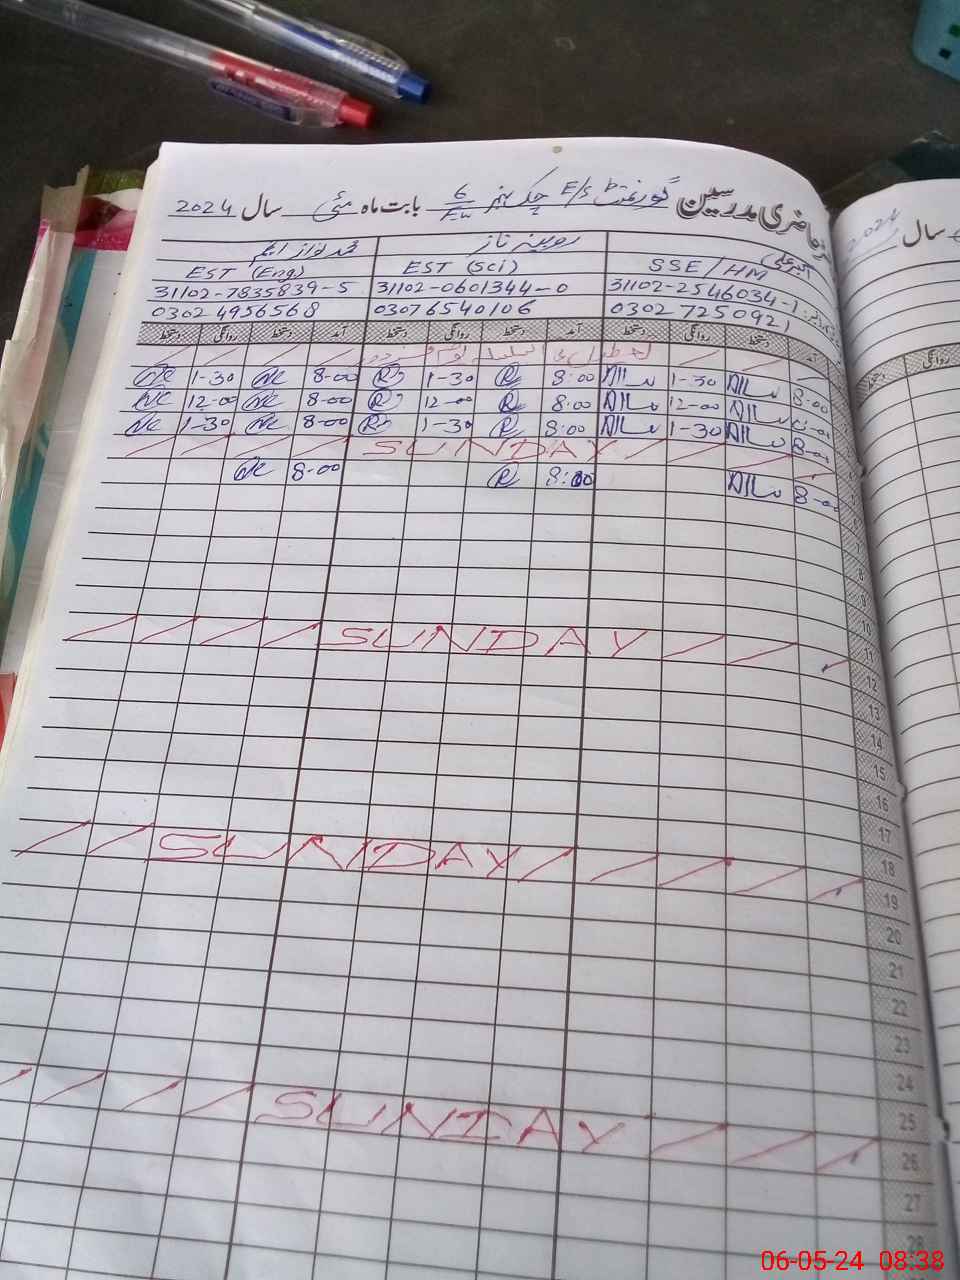 حاضری مدرسین گورنمنٹ E/S چک نمبر 6/FW بابت ماہ مئی سال 2024
اکبر علی روبینہ ناز محمد نواز انجم
SSE/HM EST (Sci) EST (Eng)
31102-2546034-1 31102-0601344-0 31102-7835839-5
0302 7250921 03076540106 0302 4956568
آمد دستخط روانگی دستخط آمد دستخط روانگی دستخط آمد دستخط روانگی دستخط
تعطیل بسلسلہ یوم مزدور
8-00 1-30 8:00 1-30 8-00 1-30
12-00 8:00 12-00 8-00 12-00
8-00 1-30 8:00 1-30 8-00 1-30
SUNDAY
8-00 8:00 8-00
7
8
9
10
11
SUNDAY
12
13
14
15
16
17
18
SUNDAY
19
20
21
22
23
24
25
SUNDAY
26
27
28
سال 2024
روانگی
دستخط
06-05-24 08:38